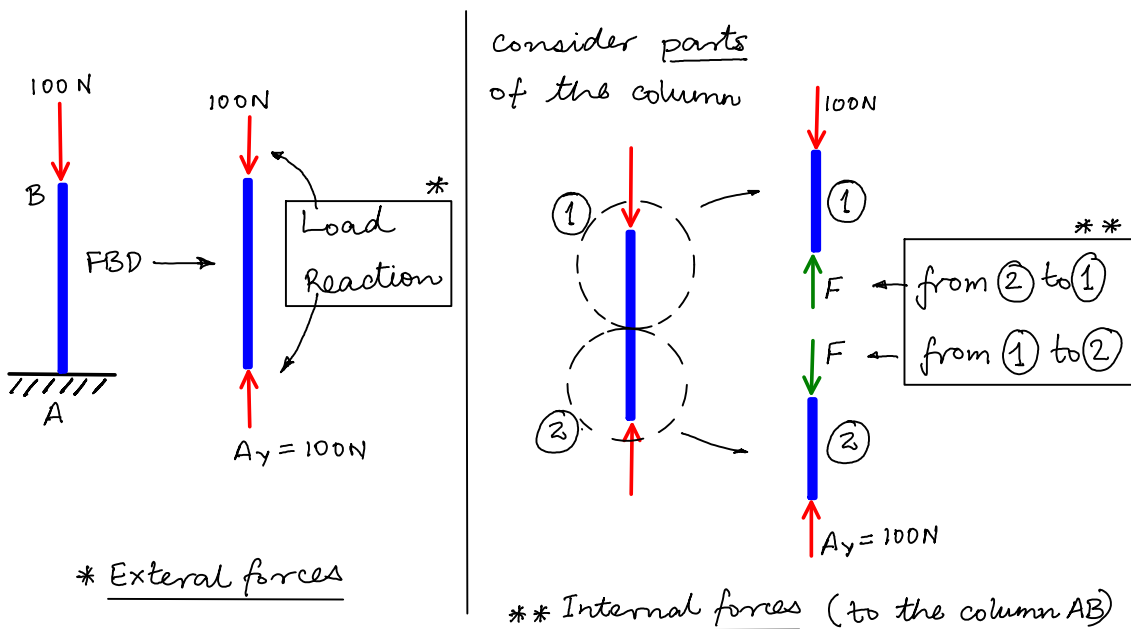 100 N
B
A
FBD
100N
*
Load
Reaction
Ay = 100N
* Exteral forces
consider parts
of the column
1
2
100N
1
F
F
2
Ay = 100N
* *
from 2 to 1
from 1 to 2
** Internal forces (to the column AB)